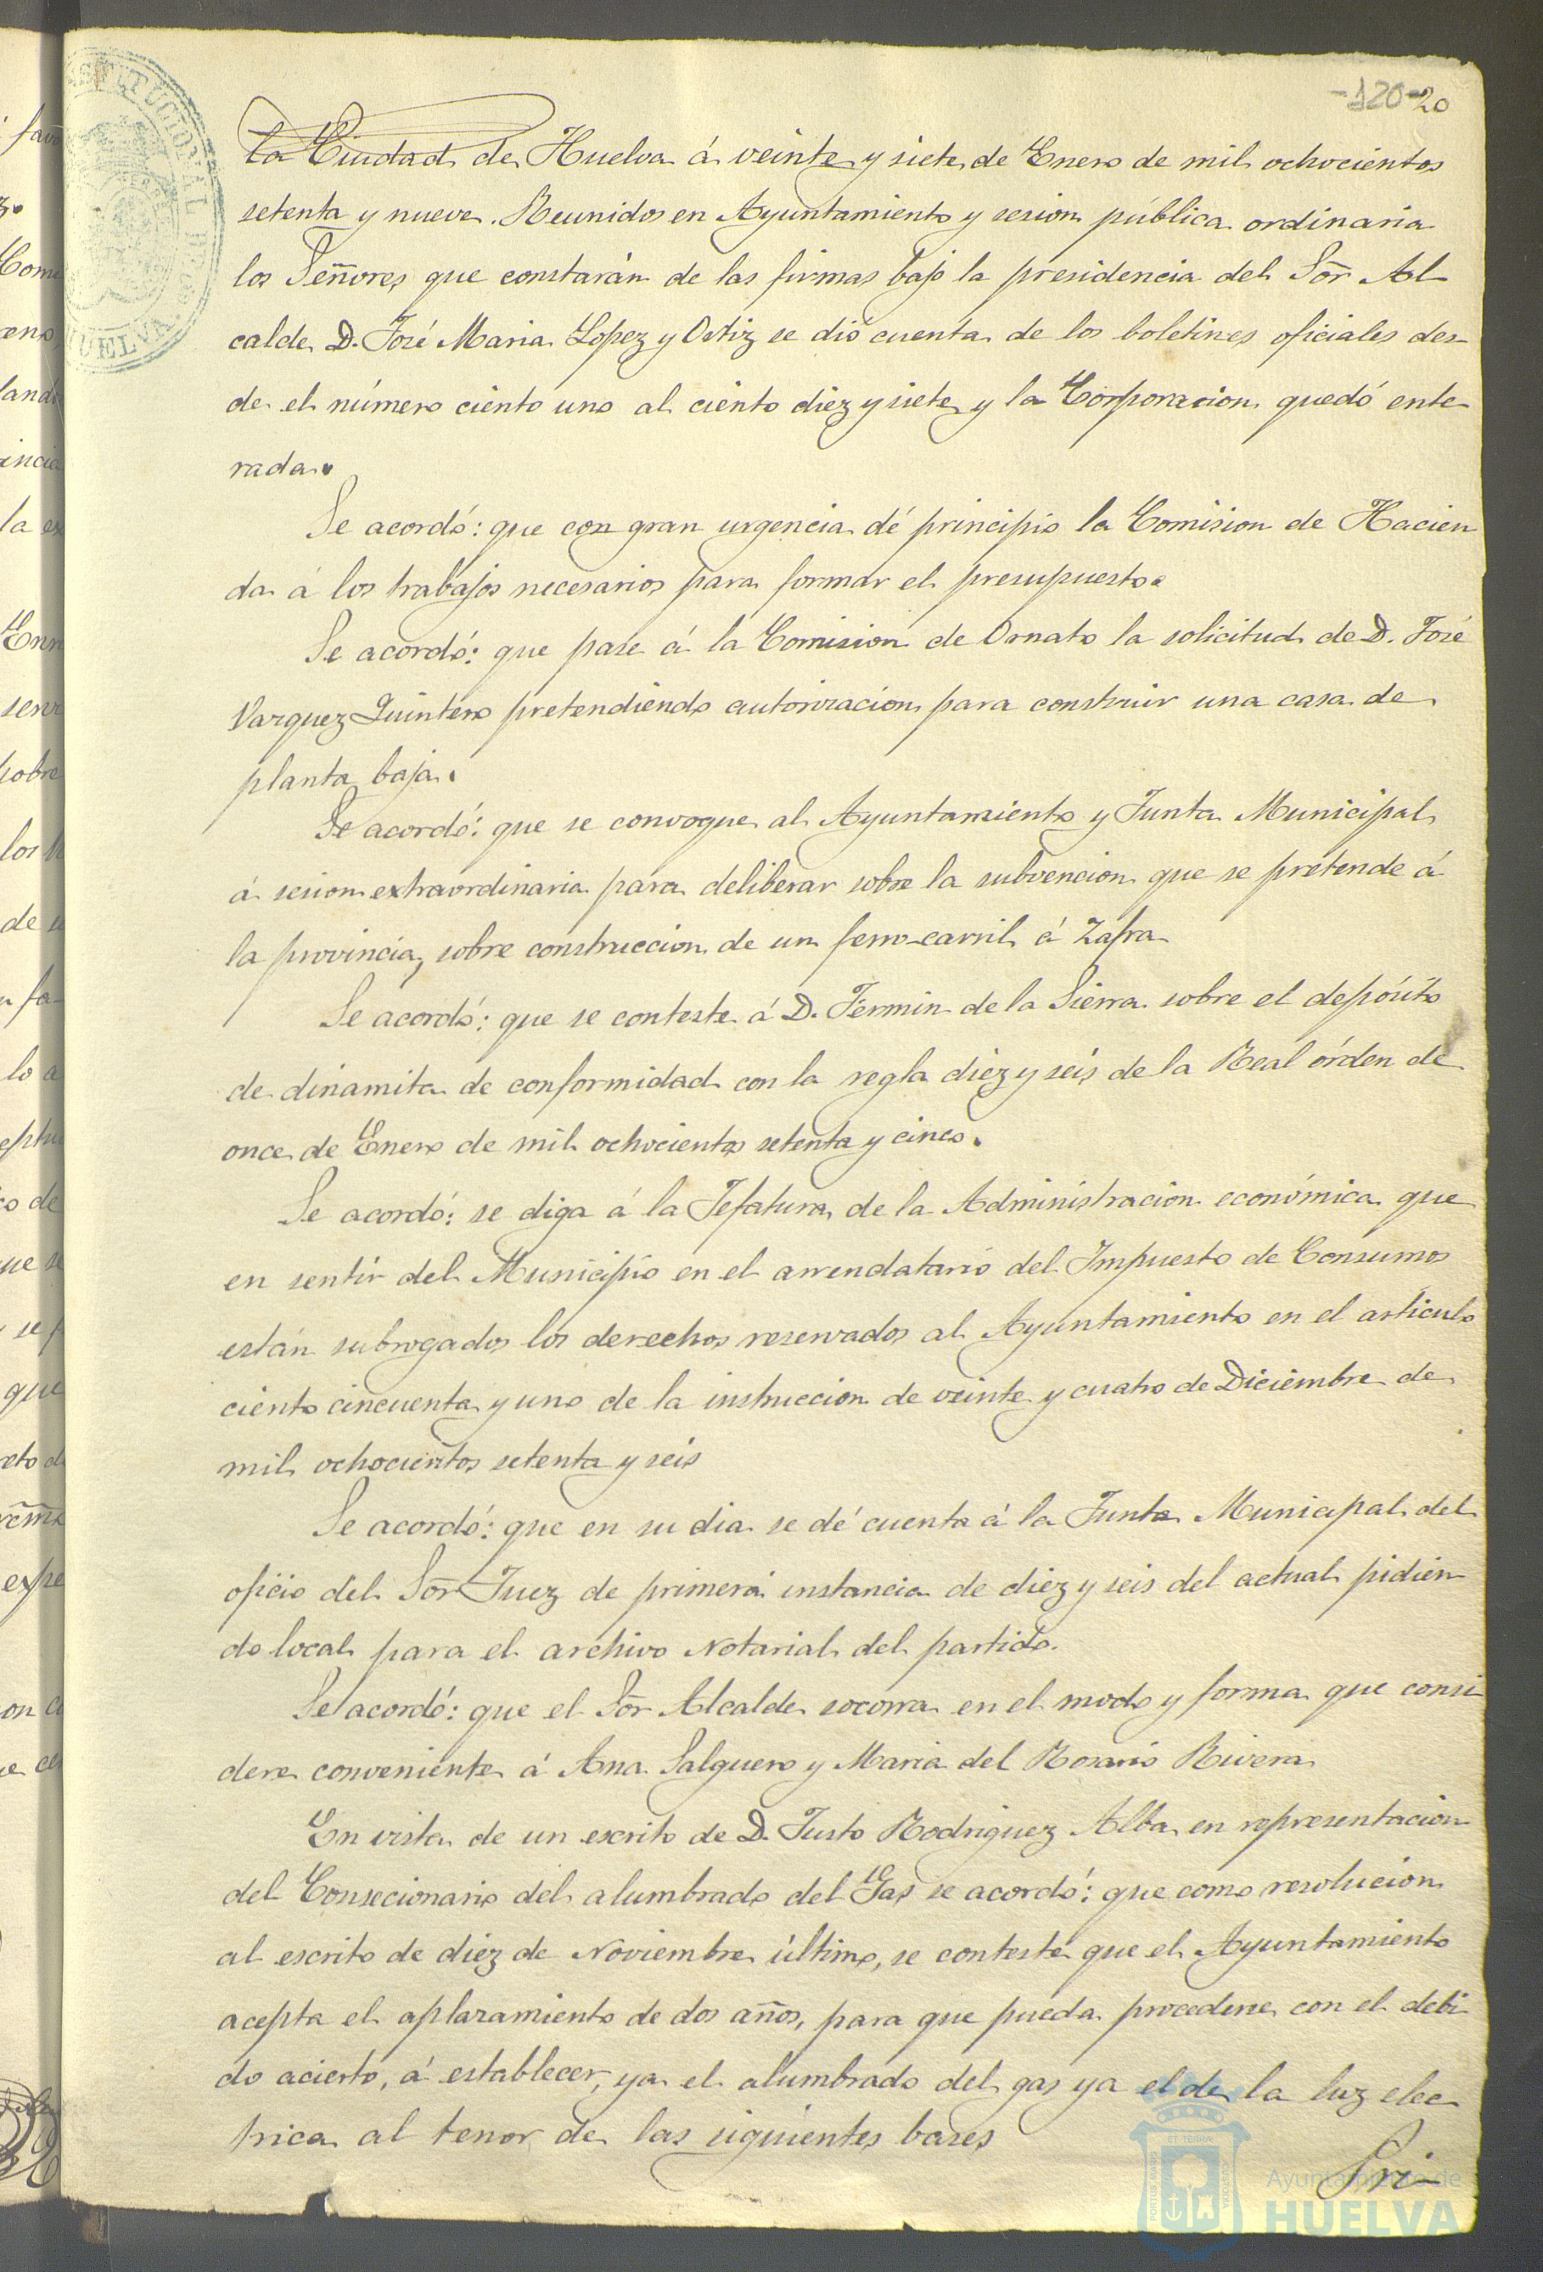 -120- 20
la Ciudad de Huelva á veinte y siete de Enero de mil ochocientos
setenta y nueve. Reunidos en Ayuntamiento y sesion pública ordinaria
los Señores que constarán de las firmas bajo la presidencia del Sõr Al-
calde D. José Maria Lopez y Ortiz se dió cuenta de los boletines oficiales des-
de el número ciento uno al ciento diez y siete y la Corporacion quedó ente-
rada.
Se acordó: que con gran urgencia dé principio la Comision de Hacien
da á los trabajos necesarios para formar el presupuesto.
Se acordó: que pase á la Comision de Ornato la solicitud de D. José
Vazquez Quintero pretendiendo autorizacion para construir una casa de
planta baja.
Se acordó: que se convoque al Ayuntamiento y Junta Municipal
á sesion extraordinaria para deliberar sobre la subvencion que se pretende á
la provincia, sobre construccion de un ferro-carril á Zafra
Se acordó: que se conteste á D. Fermin de la Sierra sobre el depósito
de dinamita de conformidad con la regla diez y seis de la Real órden de
once de Enero de mil ochocientos setenta y cinco.
Se acordó: se diga á la Jefatura de la Administracion económica que
en sentir del Municipio en el arrendatario del Impuesto de Consumos
están subrogados los derechos reservados al Ayuntamiento en el articulo
ciento cincuenta y uno de la instruccion de veinte y cuatro de Diciembre de
mil ochocientos setenta y seis
Se acordó: que en su dia se dé cuenta á la Junta Municipal del
oficio del Sõr Juez de primera instancia de diez y seis del actual pidien-
do local para el archivo Notarial del partido.
Se acordó: que el Sõr Alcalde socorra en el modo y forma que consi
dere conveniente á Ana Salguero y Maria del Rosario Rivera
En vista de un escrito de D. Justo Rodriguez Alba en representacion
del Consecionario del alumbrado del Gas se acordó: que como resolucion
al escrito de diez de Noviembre último, se conteste que el Ayuntamiento
acepta el aplazamiento de dos años, para que pueda procederse con el debi-
do acierto, á establecer, ya el alumbrado del gas ya el de la luz elec
trica al tenor de las siguientes bases
Pri-
Ayuntamiento de
HUELVA